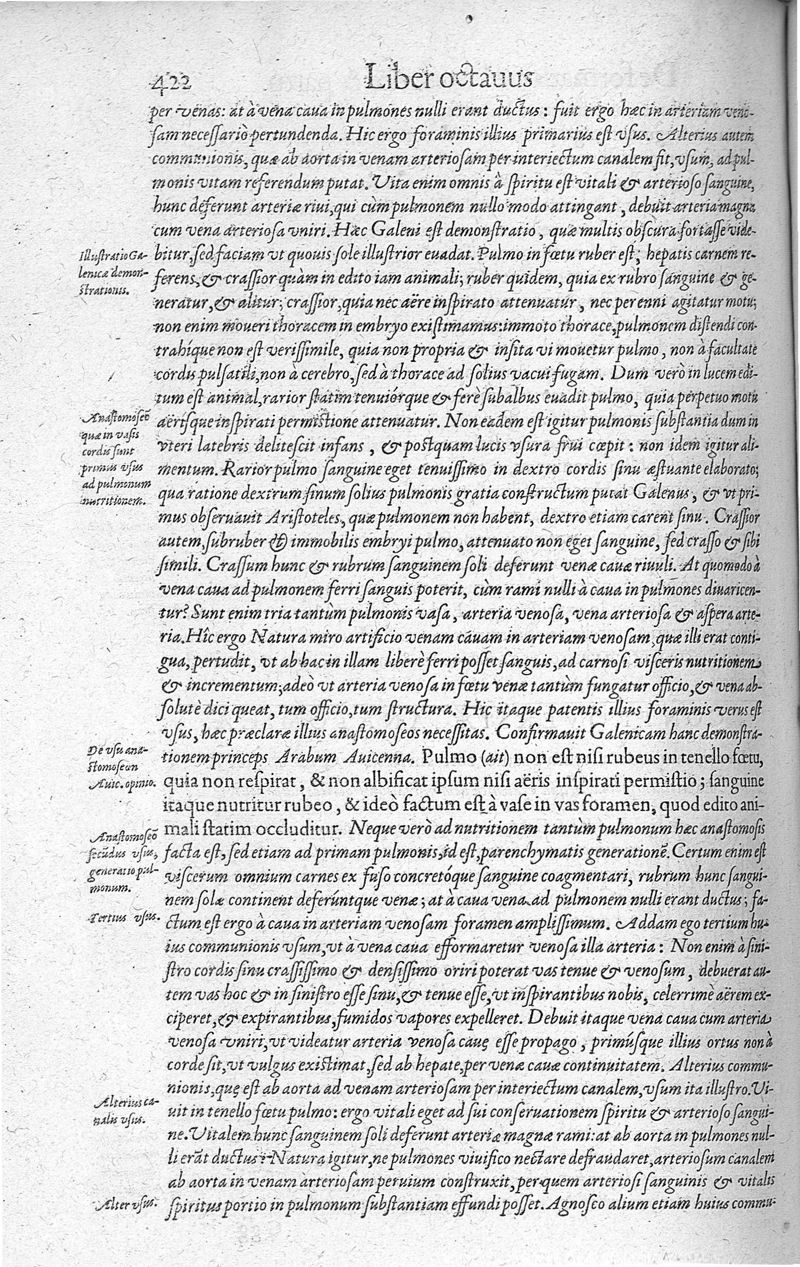 422
Liber octauus
per venas: at à vena caua in pulmones nulli erant ductus: fuit ergo hæc in arteriam veno-
sam necessariò pertundenda. Hic ergo foraminis illius primarius est vsus. Alterius autem
communionis, quæ ab aorta in venam arteriosam per interiectum canalem fit, vsum, ad pul-
monis vitam referendum putat. Vita enim omnis à spiritu est vitali & arterioso sanguine,
hunc deferunt arteriæ riui, qui cùm pulmonem nullo modo attingant, debuit arteria magna
cum vena arteriosa vniri. Hæc Galeni est demonstratio, quæ multis obscura fortasse vide-
Illustratio Ga-
lenicæ demon-
strationis.
bitur, sed faciam vt quouis sole illustrior euadat. Pulmo in fœtu ruber est; hepatis carnem re-
ferens, & crassior quàm in edito iam animali; ruber quidem, quia ex rubro sanguine & ge-
neratur, & alitur; crassior, quia nec aëre inspirato attenuatur, nec perenni agitatur motu;
non enim moueri thoracem in embryo existimamus: immoto thorace, pulmonem distendi con-
trahíque non est verissimile, quia non propria & insita vi mouetur pulmo, non à facultate
cordis pulsatili, non à cerebro, sed à thorace ad solius vacui fugam. Dum verò in lucem edi-
tum est animal, rarior statim tenuiórque & ferè subalbus euadit pulmo, quia perpetuo motu
Anastomoseō
quæ in vasis
cordis sunt
primus vsus
ad pulmonum
nutritionem.
aërisque inspirati permistione attenuatur. Non eadem est igitur pulmonis substantia dum in
vteri latebris delitescit infans, & postquam lucis vsura frui cœpit: non idem igitur ali-
mentum. Rarior pulmo sanguine eget tenuissimo in dextro cordis sinu æstuante elaborato;
qua ratione dextrum sinum solius pulmonis gratia constructum putat Galenus, & vt pri-
mus obseruauit Aristoteles, quæ pulmonem non habent, dextro etiam carent sinu. Crassior
autem, subruber & immobilis embryi pulmo, attenuato non eget sanguine, sed crasso & sibi
simili. Crassum hunc & rubrum sanguinem soli deferunt venæ cauæ riuuli. At quomodo à
vena caua ad pulmonem ferri sanguis poterit, cùm rami nulli à caua in pulmones diuaricen-
tur? Sunt enim tria tantùm pulmonis vasa, arteria venosa, vena arteriosa & aspera arte-
ria. Hîc ergo Natura miro artificio venam cauam in arteriam venosam, quæ illi erat conti-
gua, pertudit, vt ab hac in illam liberè ferri posset sanguis, ad carnosi visceris nutritionem
& incrementum; adeò vt arteria venosa in fœtu venæ tantùm fungatur officio, & vena ab-
solutè dici queat, tum officio, tum structura. Hic itaque patentis illius foraminis verus est
vsus, hæc præclaræ illius anastomoseos necessitas. Confirmauit Galenicam hanc demonstra-
De vsu ana-
stomoseωn
Auic. opinio.
tionem princeps Arabum Auicenna. Pulmo (ait) non est nisi rubeus in tenello fœtu,
quia non respirat, & non albificat ipsum nisi aëris inspirati permistio; sanguine
itaque nutritur rubeo, & ideò factum est à vase in vas foramen, quod edito ani-
mali statim occluditur. Neque verò ad nutritionem tantùm pulmonum hæc anastomosis
Anastomoseō
secūdus vsus,
generatio pul-
monum.
facta est, sed etiam ad primam pulmonis, id est, parenchymatis generationē. Certum enim est
viscerum omnium carnes ex fuso concretóque sanguine coagmentari, rubrum hunc sangui-
nem solæ continent deferúntque venæ; at à caua vena ad pulmonem nulli erant ductus; fa-
Tertius vsus.
ctum est ergo à caua in arteriam venosam foramen amplissimum. Addam ego tertium hu-
ius communionis vsum, vt à vena caua efformaretur venosa illa arteria: Non enim à sini-
stro cordis sinu crassissimo & densissimo oriri poterat vas tenue & venosum, debuerat au-
tem vas hoc & in sinistro esse sinu, & tenue esse, vt inspirantibus nobis, celerrimè aërem ex-
ciperet, & expirantibus, fumidos vapores expelleret. Debuit itaque vena caua cum arteria
venosa vniri, vt videatur arteria venosa cauę esse propago, primúsque illius ortus non à
corde sit, vt vulgus existimat, sed ab hepate, per venæ cauæ continuitatem. Alterius commu-
nionis, quę est ab aorta ad venam arteriosam per interiectum canalem, vsum ita illustro. Vi-
Alterius ca-
nalis vsus.
uit in tenello fœtu pulmo: ergo vitali eget ad sui conseruationem spiritu & arterioso sangui-
ne. Vitalem hunc sanguinem soli deferunt arteriæ magnæ rami: at ab aorta in pulmones nul-
li erāt ductus: Natura igitur, ne pulmones viuifico nectare defraudaret, arteriosum canalem
ab aorta in venam arteriosam peruium construxit, per quem arteriosi sanguinis & vitalis
Alter vsus.
spiritus portio in pulmonum substantiam effundi posset. Agnosco alium etiam huius commu-